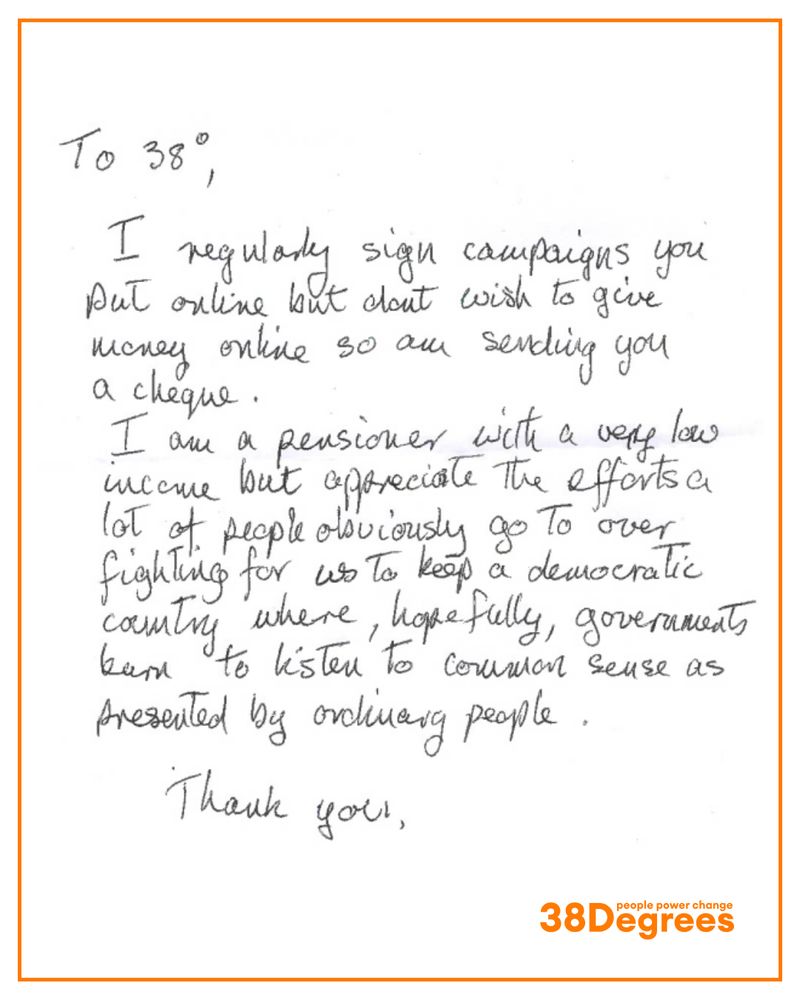 To 38°,
I regularly sign campaigns you
put online but dont wish to give
money online so am sending you
a cheque.
I am a pensioner with a very low
income but appreciate the efforts a
lot of people obviously go to over
fighting for us to keep a democratic
country where, hopefully, governments
learn to listen to common sense as
presented by ordinary people.
Thank you,
people power change
38Degrees